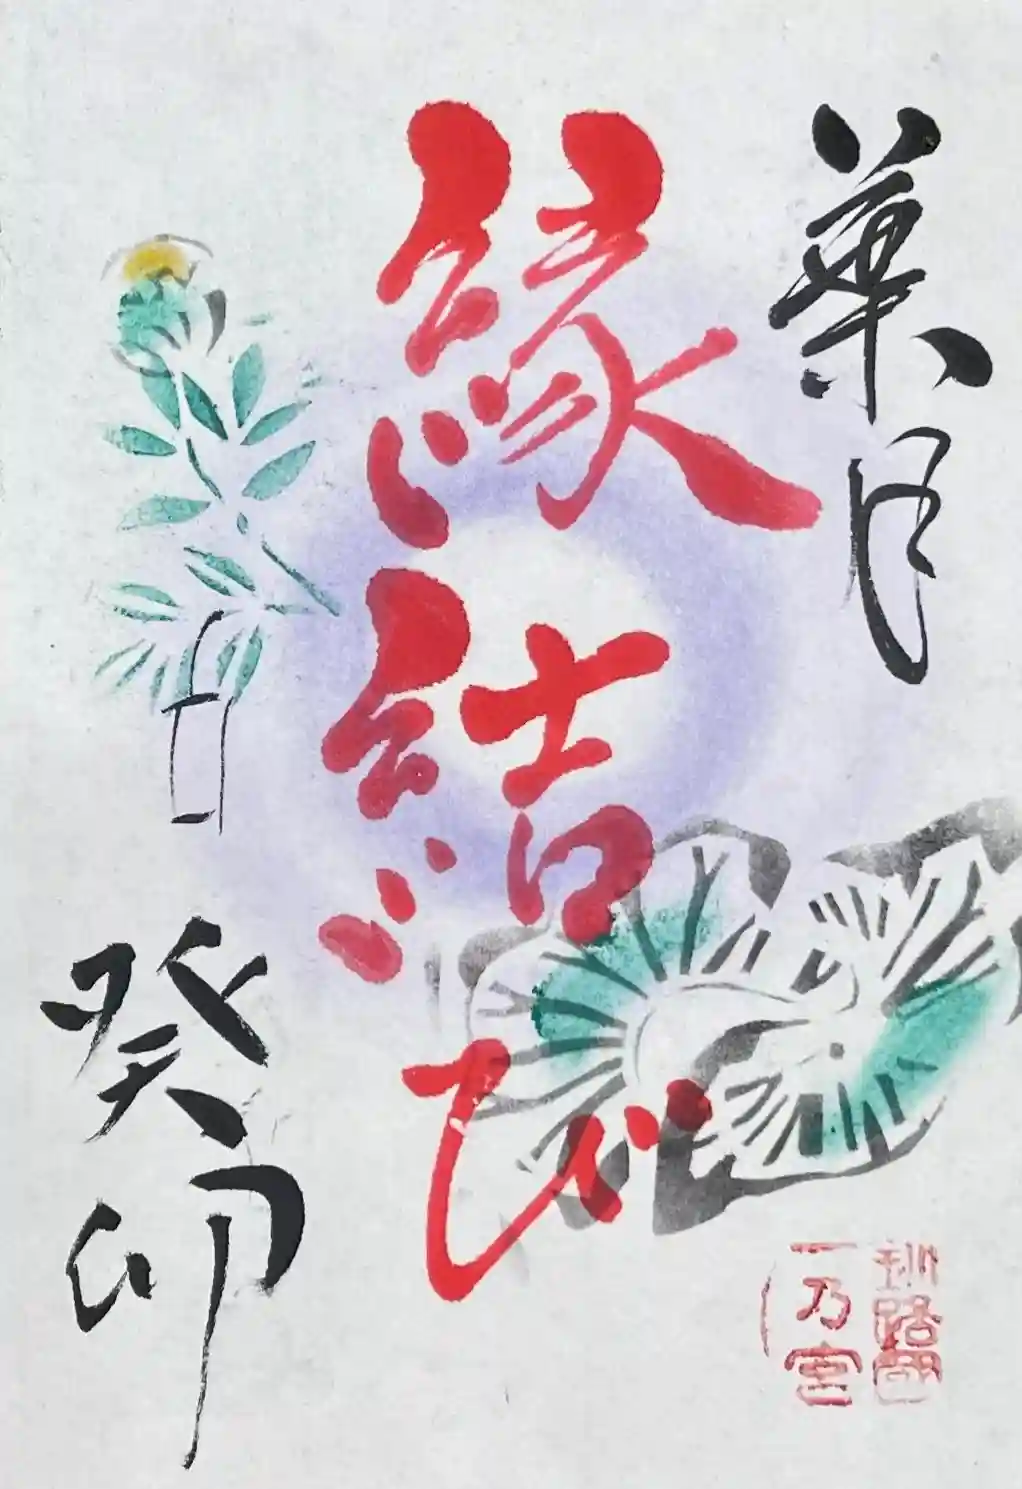 葉月
縁結び
日
癸卯
釧路國
一乃宮